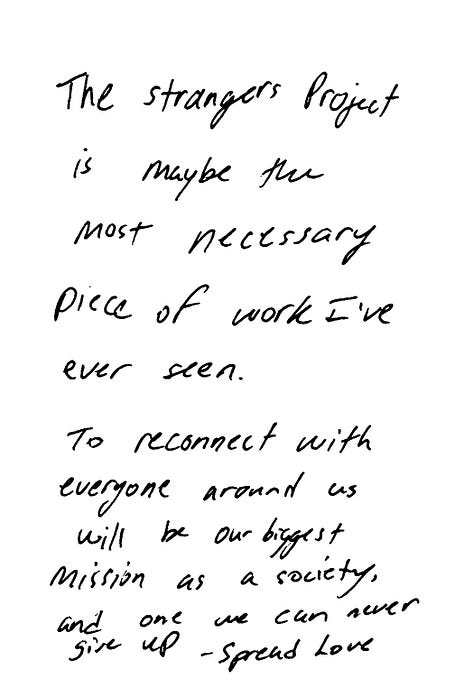 The strangers Project
is maybe the
most necessary
piece of work I've
ever seen.
To reconnect with
everyone around us
will be our biggest
Mission as a society,
and one we can never
give up - Spread Love